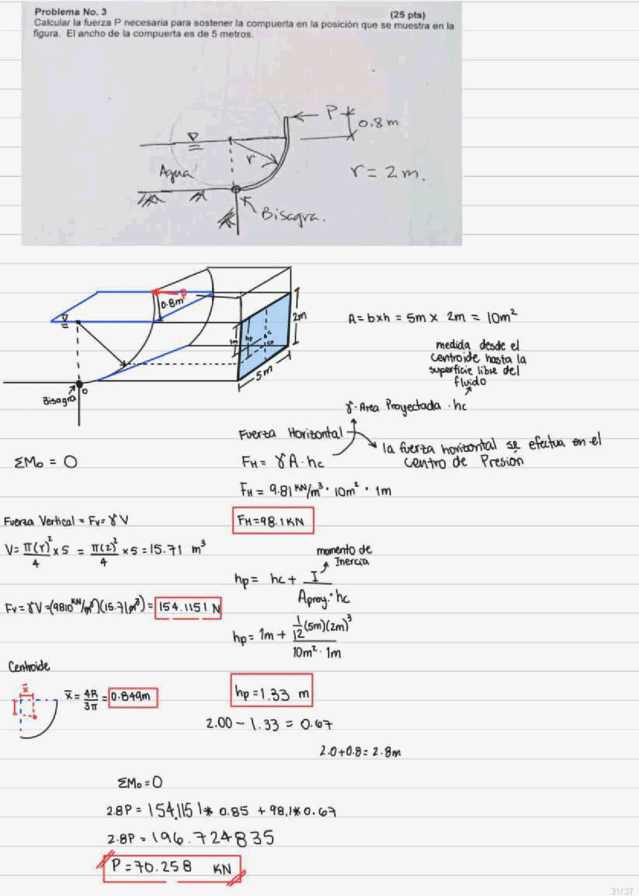 Problema No. 3 (25 pts)
Calcular la fuerza P necesaria para sostener la compuerta en la posición que se muestra en la
figura. El ancho de la compuerta es de 5 metros.
P
0.8 m
r
Agua
r = 2 m.
Bisagra.
0.8m
P
2m
1m
hp
5m
Bisagra
O
A = b×h = 5m × 2m = 10m²
medida desde el
centroide hasta la
superficie libre del
fluido
γ·Area Proyectada · hc
Fuerza Horizontal
la fuerza horizontal se efectua en el
Centro de Presion
ΣMo = 0
FH = γ A · hc
FH = 9.81 KN/m³ · 10m² · 1m
FH = 98.1 KN
Fuerza Vertical = Fv = γ V
V = π(r)²/4 × 5 = π(2)²/4 × 5 = 15.71 m³
momento de
Inercia
hp = hc + I/Aproy · hc
Fv = γV = (9810 KN/m³)(15.71m³) = 154.1151 N
hp = 1m + 1/12 (5m)(2m)³/10m² · 1m
Centroide
x̄
x̄ = 4R/3π = 0.849m
hp = 1.33 m
2.00 − 1.33 = 0.67
2.0 + 0.8 = 2.8m
ΣMo = 0
2.8P = 154.1151 * 0.85 + 98.1 * 0.67
2.8P = 196.724835
P = 70.258 KN
31/37